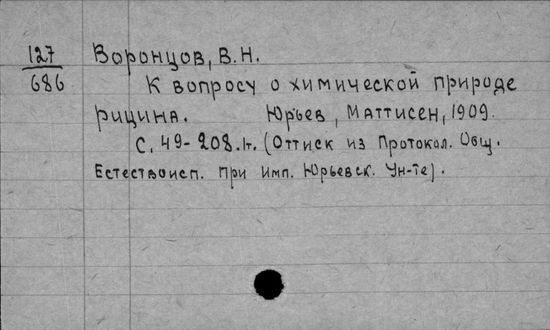 127 Воронцов, В.Н.
686 К вопросу о химической природе
рицина. Юрьев, Маттисен, 1909.
С. 49-208. (Оттиск из Протокол. Общ.
Естествоисп. при Имп. Юрьевск. Ун-те).